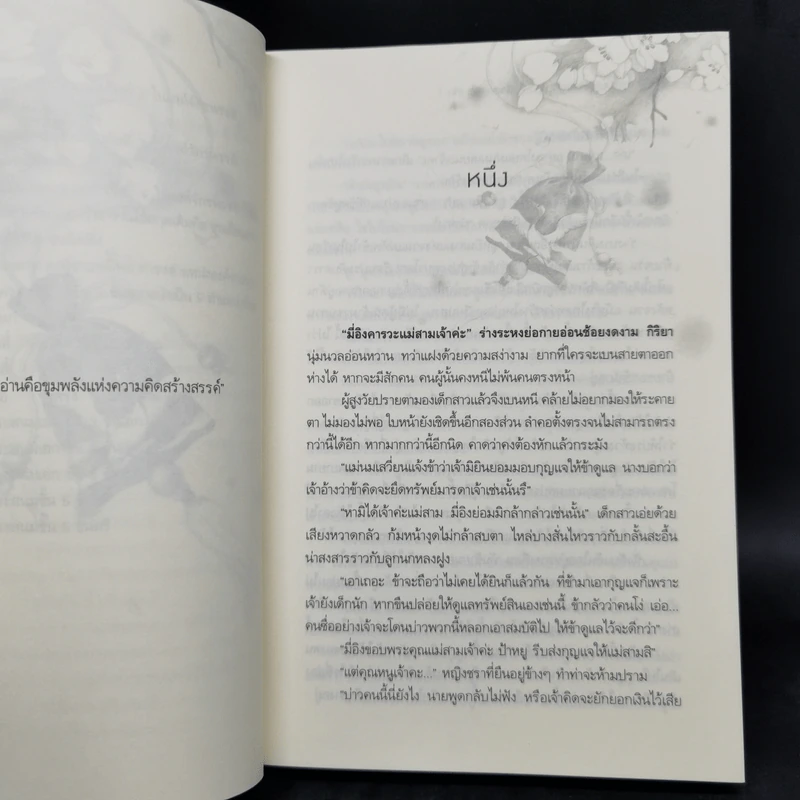 อ่านคือขุมพลังแห่งความคิดสร้างสรรค์"
หนึ่ง
"มี่อิงคารวะแม่สามเจ้าค่ะ" ร่างระหงย่อกายอ่อนช้อยงดงาม กิริยา
นุ่มนวลอ่อนหวาน ทว่าแฝงด้วยความสง่างาม ยากที่ใครจะเบนสายตาออก
ห่างได้ หากจะมีสักคน คนผู้นั้นคงหนีไม่พ้นคนตรงหน้า
ผู้สูงวัยปรายตามองเด็กสาวแล้วจึงเบนหนี คล้ายไม่อยากมองให้ระคาย
ตา ไม่มองไม่พอ ใบหน้ายังเชิดขึ้นอีกสองส่วน ลำคอตั้งตรงจนไม่สามารถตรง
กว่านี้ได้อีก หากมากกว่านี้อีกนิด คาดว่าคงต้องหักแล้วกระมัง
"แม่นมเสวี่ยนแจ้งข้าว่าเจ้ามิยินยอมมอบกุญแจให้ข้าดูแล นางบอกว่า
เจ้าอ้างว่าข้าคิดจะยึดทรัพย์มารดาเจ้าเช่นนั้นรึ"
"หามิได้เจ้าค่ะแม่สาม มี่อิงย่อมมิกล้ากล่าวเช่นนั้น" เด็กสาวเอ่ยด้วย
เสียงหวาดกลัว ก้มหน้างุดไม่กล้าสบตา ไหล่บางสั่นไหวราวกับกลั้นสะอื้น
น่าสงสารราวกับลูกนกหลงฝูง
"เอาเถอะ ข้าจะถือว่าไม่เคยได้ยินก็แล้วกัน ที่ข้ามาเอากุญแจก็เพราะ
เจ้ายังเด็กนัก หากขืนปล่อยให้ดูแลทรัพย์สินเองเช่นนี้ ข้ากลัวว่าคนโง่ เอ่อ...
คนซื่ออย่างเจ้าจะโดนบ่าวพวกนี้หลอกเอาสมบัติไป ให้ข้าดูแลไว้จะดีกว่า"
"มี่อิงขอบพระคุณแม่สามเจ้าค่ะ ป้าหยู รีบส่งกุญแจให้แม่สามสิ"
"แต่คุณหนูเจ้าคะ..." หญิงชราที่ยืนอยู่ข้างๆ ทำท่าจะห้ามปราม
"บ่าวคนนี้นี่ยังไง นายพูดกลับไม่ฟัง หรือเจ้าคิดจะยักยอกเงินไว้เสีย